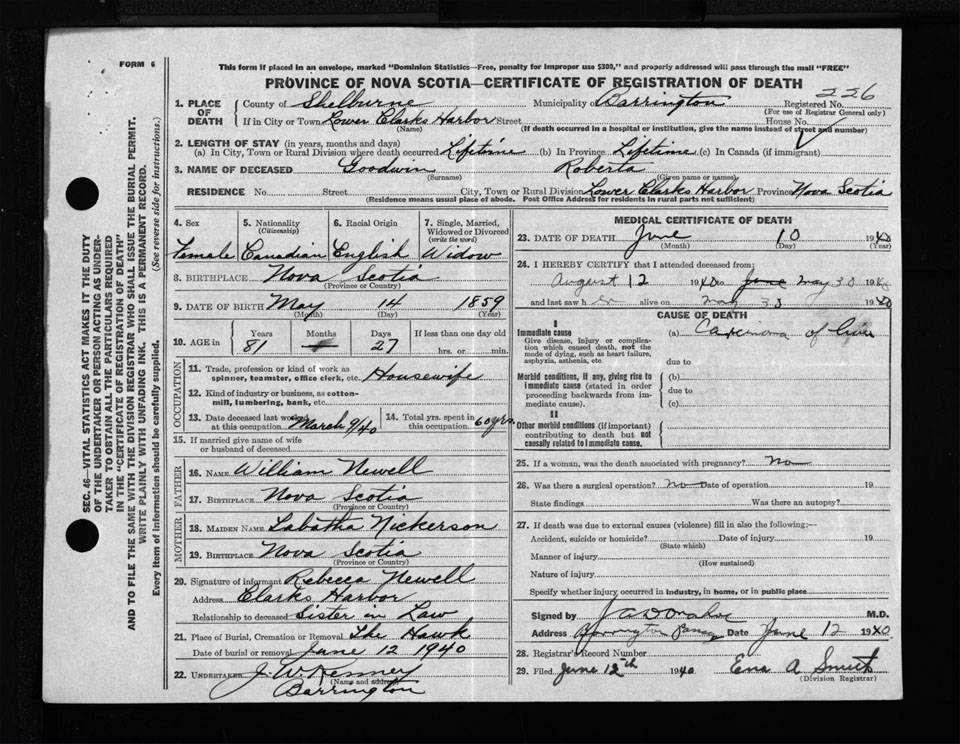 FORM 6
This form if placed in an envelope, marked "Dominion Statistics—Free, penalty for improper use $300," and properly addressed will pass through the mail "FREE"
PROVINCE OF NOVA SCOTIA—CERTIFICATE OF REGISTRATION OF DEATH
226
1. PLACE OF DEATH
County of Shelburne Municipality Barrington Registered No.
(For use of Registrar General only)
If in City or Town Lower Clarks Harbor Street House No.
(Name) (If death occurred in a hospital or institution, give the name instead of street and number)
2. LENGTH OF STAY (in years, months and days)
(a) In City, Town or Rural Division where death occurred Lifetime (b) In Province Lifetime (c) In Canada (if immigrant)
3. NAME OF DECEASED Goodwin Roberta
(Surname) (Given name or names)
RESIDENCE No. Street City, Town or Rural Division Lower Clarks Harbor Province Nova Scotia
(Residence means usual place of abode. Post Office Address for residents in rural parts not sufficient)
4. Sex 5. Nationality (Citizenship) 6. Racial Origin 7. Single, Married, Widowed or Divorced (write the word)
Female Canadian English Widow
8. BIRTHPLACE Nova Scotia
(Province or Country)
9. DATE OF BIRTH May 14 1859
(Month) (Day) (Year)
10. AGE in Years Months Days If less than one day old
81 27 hrs. or min.
OCCUPATION
11. Trade, profession or kind of work as spinner, teamster, office clerk, etc. Housewife
12. Kind of industry or business, as cotton-mill, lumbering, bank, etc.
13. Date deceased last worked at this occupation March 9/40
14. Total yrs. spent in this occupation 60 yrs.
15. If married give name of wife or husband of deceased
FATHER
16. NAME William Newell
17. BIRTHPLACE Nova Scotia
(Province or Country)
MOTHER
18. MAIDEN NAME Labatha Nickerson
19. BIRTHPLACE Nova Scotia
(Province or Country)
20. Signature of informant Rebecca Newell
Address Clarks Harbor
Relationship to deceased Sister in Law
21. Place of Burial, Cremation or Removal The Hawk
Date of burial or removal June 12 1940
22. UNDERTAKER J. W. Kenney
(Name and address)
Barrington
MEDICAL CERTIFICATE OF DEATH
23. DATE OF DEATH June 10 1940
(Month) (Day) (Year)
24. I HEREBY CERTIFY that I attended deceased from:
August 12 1940 to June May 30 1940
and last saw her alive on May 30 1940
CAUSE OF DEATH
I
Immediate cause (a) Carcinoma of liver
Give disease, injury or complication which caused death, not the mode of dying, such as heart failure, asphyxia, asthenia, etc.
due to
Morbid conditions, if any, giving rise to immediate cause (stated in order proceeding backwards from immediate cause).
(b)
due to
(c)
II
Other morbid conditions (if important) contributing to death but not causally related to immediate cause.
25. If a woman, was the death associated with pregnancy? No
26. Was there a surgical operation? No Date of operation 19
State findings Was there an autopsy?
27. If death was due to external causes (violence) fill in also the following:—
Accident, suicide or homicide? Date of injury 19
(State which)
Manner of injury
(How sustained)
Nature of injury
Specify whether injury occurred in industry, in home, or in public place
Signed by M.D.
Address Barrington Passage Date June 12 1940
28. Registrar's Record Number
29. Filed June 12th 1940 Ena A Smith
(Division Registrar)
SEC. 46—VITAL STATISTICS ACT MAKES IT THE DUTY
OF THE UNDERTAKER OR PERSON ACTING AS UNDER-
TAKER TO OBTAIN ALL THE PARTICULARS REQUIRED
IN THE "CERTIFICATE OF REGISTRATION OF DEATH"
AND TO FILE THE SAME WITH THE DIVISION REGISTRAR WHO SHALL ISSUE THE BURIAL PERMIT.
WRITE PLAINLY WITH UNFADING INK. THIS IS A PERMANENT RECORD.
Every item of Information should be carefully supplied. (See reverse side for instructions.)